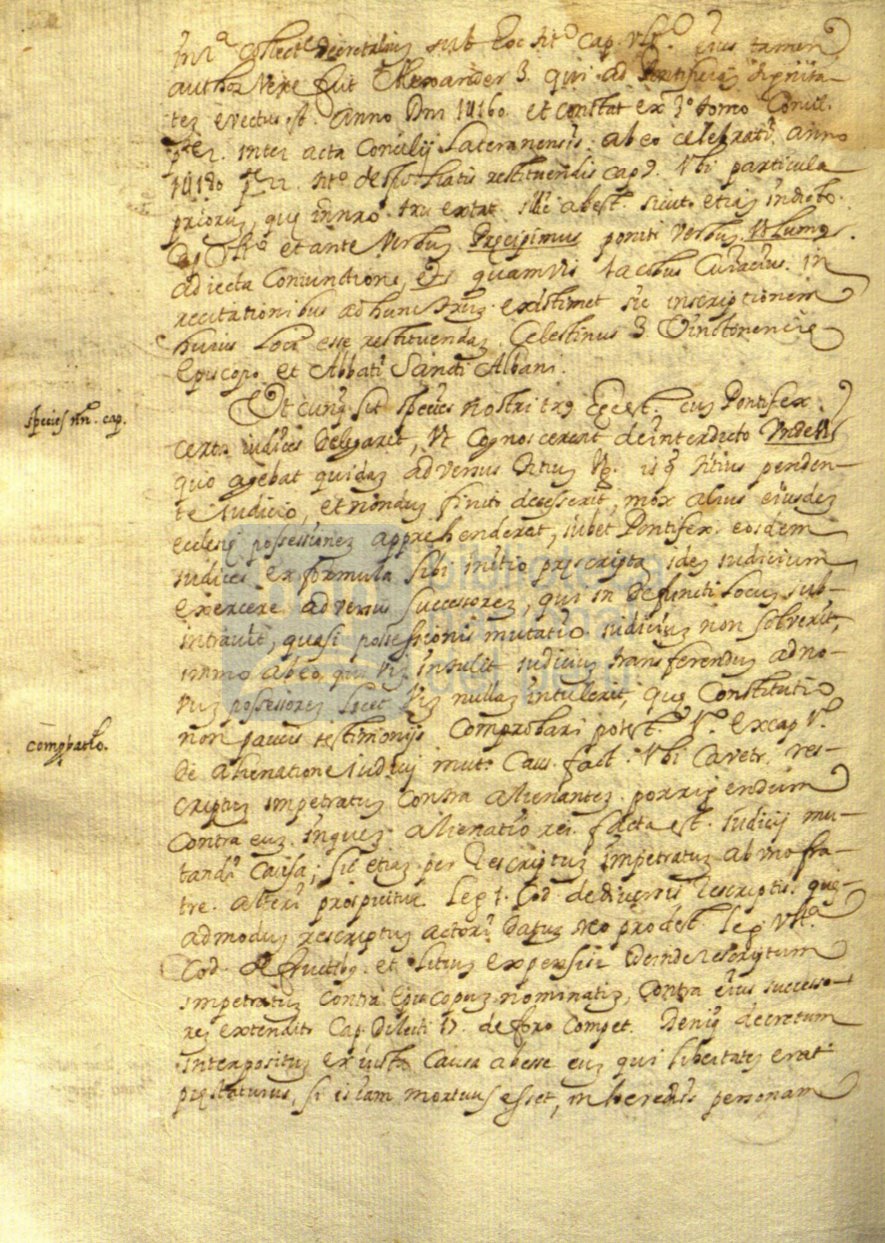 collect.e Decretalium sub hoc tit.o cap. eius tamen
author vere fuit Alexander 3. qui ad Pontificiam dignita-
tem evectus est. Anno Dni 1160. et constat ex 3.o tomo Concil.
inter acta Concilij Lateranensis. ab eo celebrati. anno
1180 tit.o de spoliatis restituendis cap. Vbi particula
priorum, que in nro. extat illi abest. sicuti etiam in dicto.
cap. et ante verbum Precipimus poniti verbum Volumus.
adiecta Coniunctione, Et, quamvis Iacobus Cuiacius. in
recitationibus ad hunc existimet sic inscriptionem
huius Loci esse restituendam. Celestinus 3. Vinctonencie
Episcopo et Abbati Sancti Albani.
species nri. cap.
Vt cunq sit species nostri hec est. cum Pontifex.
certos iudices delegaret, Vt Cognoscerent de interdicto Vnde Vi
quo agebat quidam adversus titium is q titius penden-
te iudicio, et nondum finito decesserit, mox alius eiusdem
ecclesie possessionem apprehenderet, iubet Pontifex. eosdem
iudices ex formula sibi initio prescripta idem iudicium
exercere adversus successorem, qui in defuncti Locum sub-
intravit, quasi possessionis mutatio iudicium non solverit,
immo ab eo, qui vim intulit iudicium transferendum ad no-
vum possessorem licet vim nullam intulerit, que Constitutio
comprobatio.
non paucis testimonijs Comprobari potest. ex cap
de alienatione iudicij mut. Caus. fact. Vbi Cavetr. res-
criptum impetratum Contra alienantem. porrigendum
Contra eum. in quem alienatio rei. facta est. iudicij mu-
tandi Causa; sic etiam per Rescriptum impetratum ab uno fra-
tre. alteri prospicitur. Leg 1. Cod. de diversis Rescriptis. quem-
admodum rescriptum actori datum reo prodest. leg
Cod. de fructibus. et litium expensis. Deinde rescriptum
impetratum Contra Episcopum nominatim, Contra eius successo-
rem extendit. Cap. Dilecti 17. de foro Compet. Deniq decretum
interpositum ex iusta Causa abesse eum qui libertatem erat
prestaturus, si is iam mortuus esset, in heredis personam